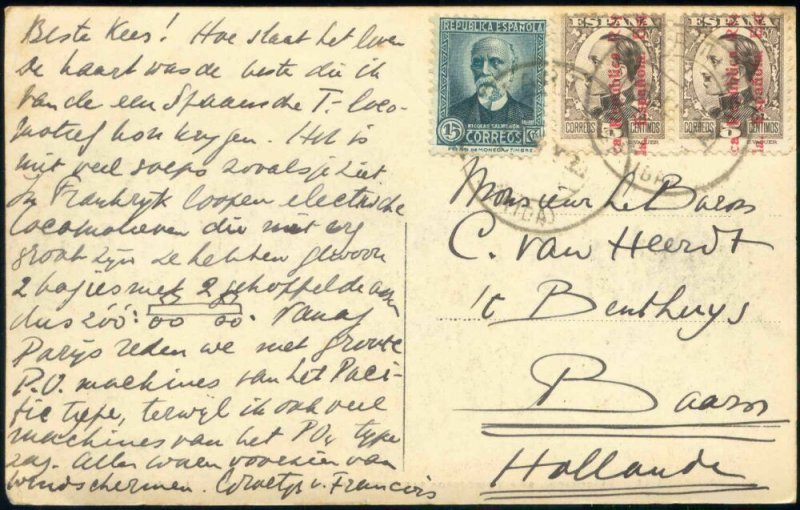 Beste Kees! Hoe staat het leven
De kaart was de beste die ik
van de een Spaansche T.-loco-
motief kon krijgen. Het is
niet veel soeps zooals je ziet
In Frankrijk loopen electrische
locomotieven die niet erg
groot zijn ze hebben gewoon
2 bogies met 2 gekoppelde assen
dus zoo: Vanaf
Parijs reden we met groote
P.O. machines van het Paci-
fic type, terwijl ik ook veel
machines van het PO, type
zag. Allen waren voorzien van
windschermen. Groetjes v. Francois
REPUBLICA ESPAÑOLA
NICOLAS SALMERON
15 CORREOS cs
ESPAÑA
CORREOS 5 CENTIMOS
ESPAÑA
CORREOS 5 CENTIMOS
Española
Monsieur le Baron
C. van Heerdt
't Benthuys
Baarn
Hollande